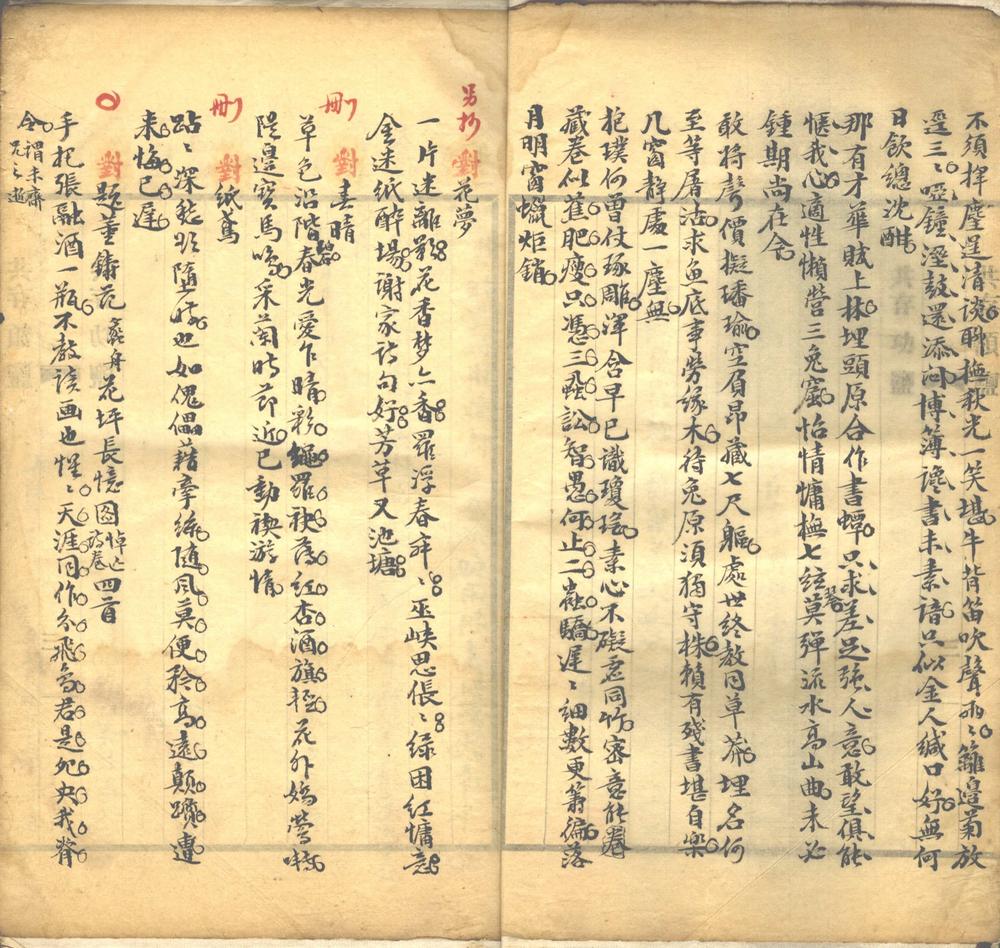 不須揮塵逞清談聊撫秋光一笑堪牛背笛吹聲兩〻籬邊菊放
逕三〻啞鐘溼鼓還添悶博簿讒書未素諳只似金人緘口好無何
日飲總沈酣
那有才華賦上林埋頭原合作書蟫只求差足强人意敢望俱能
愜我心適性懶營三兔窟怡情慵撫七絃琴莫彈流水高山曲未必
鍾期尚在今
敢將聲價擬璠瑜空負昂藏七尺軀處世終教同草莽埋名何
至等屠沽求魚底事勞緣木待兔原須獨守株賴有殘書堪自樂
几窗静處一塵無
抱璞何曾仗琢雕渾含早已識瓊瑤素心不礙忘同竹密意能卷
藏卷似蕉肥瘦只憑三蝨訟智愚何止二蟲驕遲〻細數更籌徧落
月明窗蠟炬銷
另抄 對 花夢
一片迷離影花香梦亦香羅浮春舜〻巫峽思倀〻緑困紅慵意
金迷紙醉場謝家詩句好芳草又池塘
刪 對 春晴
草色沿階碧春光愛乍晴彩繩羅袂薄紅杏酒旗輕花外嬌鶯囀
隄邊寶馬鳴采蘭時節近已動禊游情
刪 對 紙鳶
跕〻深愁欲墮時也如傀儡藉牽絲隨風莫便矜高遠顛躓連
来悔已遲
對 題董鑄范 花坪長憶图 悼亡 四首
手把張融酒一瓶不教該画也惺〻天涯同作分飛鳥君是死夬我脊
令